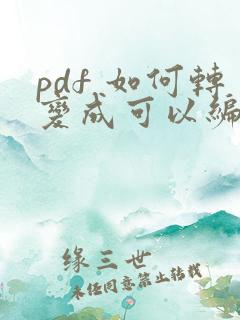 pdf 如何轉
變成可以編
緣三世
未经同意禁止转载